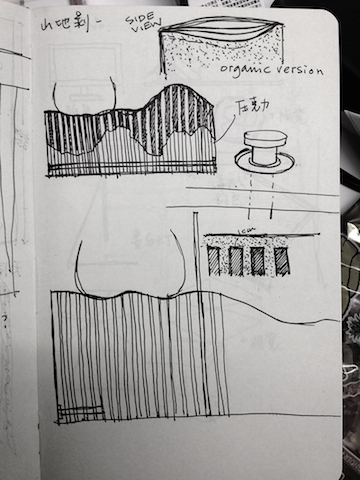 山地剥-
SIDE
VIEW
organic version
压克力
1cm